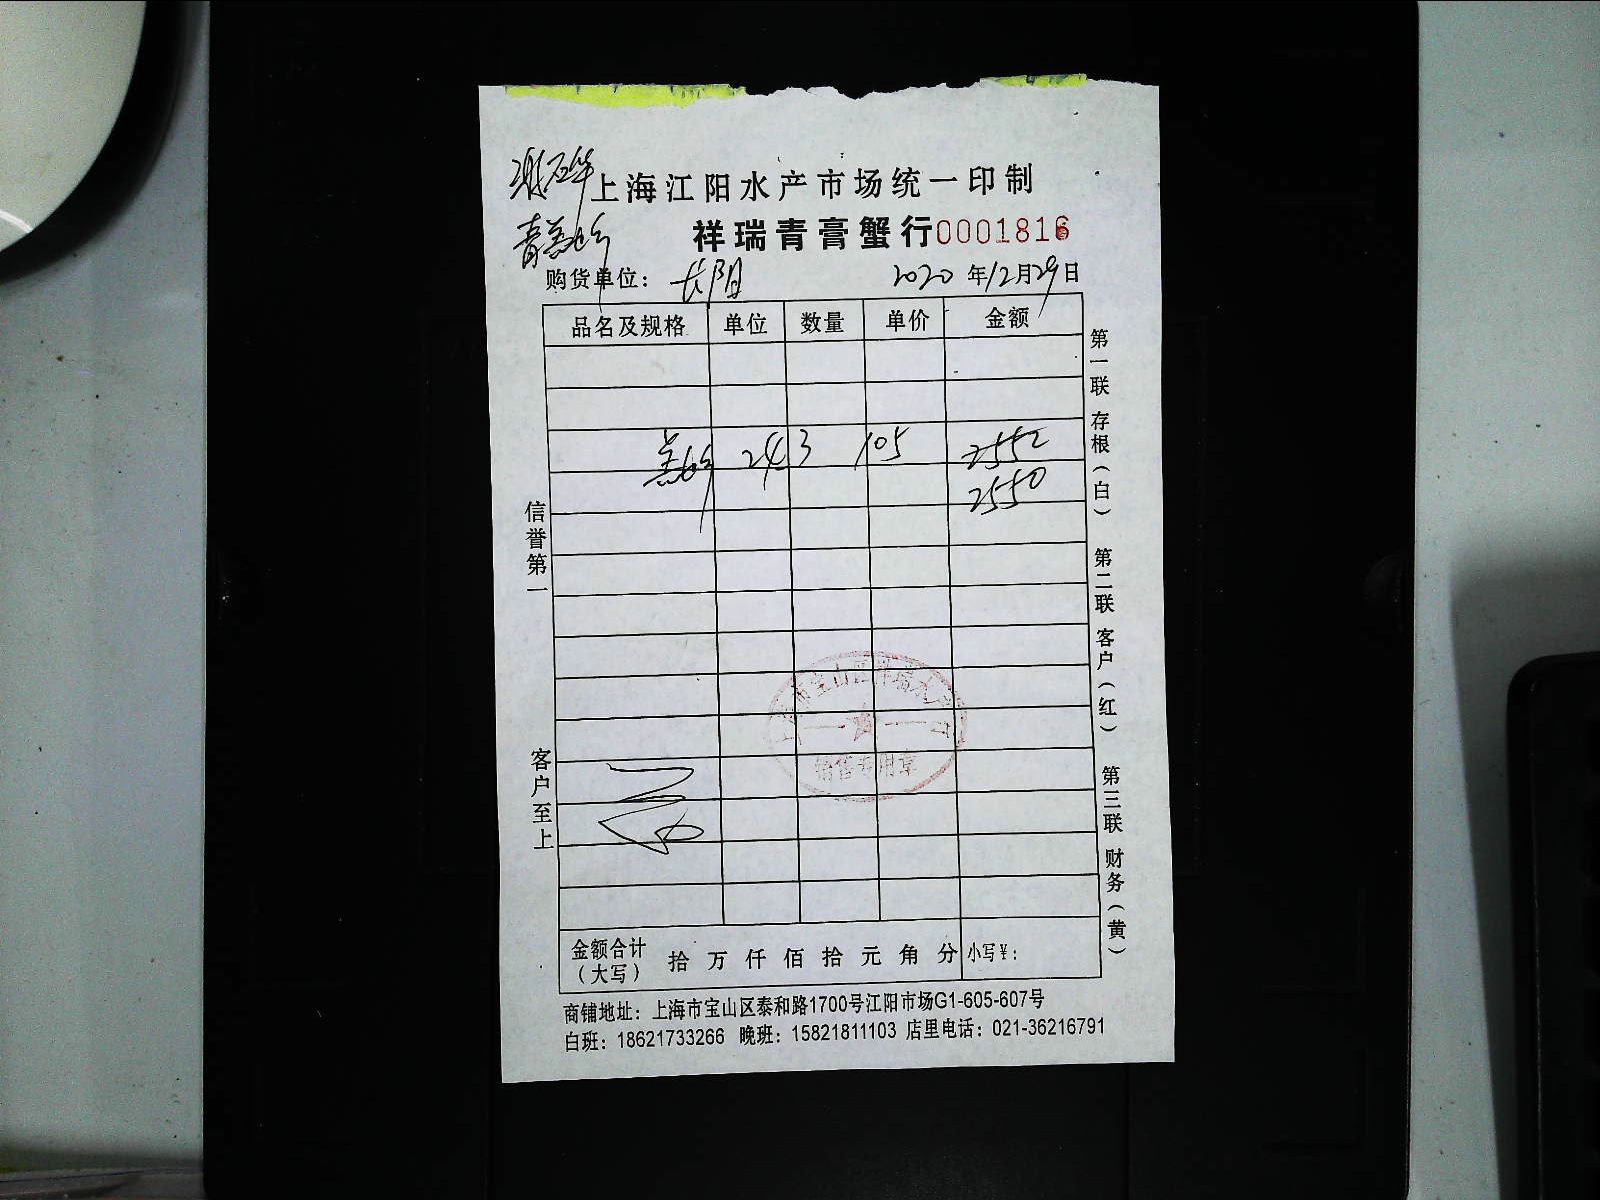 上海江阳水产市场统一印制
祥瑞青膏蟹行 0001816
购货单位： 长阳 2020年12月29日
品名及规格 单位 数量 单价 金额
243 105 2552
2550
信誉第一
客户至上
第一联 存根（白） 第二联 客户（红） 第三联 财务（黄）
上海市宝山区祥瑞水产行
销售专用章
金额合计（大写） 拾 万 仟 佰 拾 元 角 分 小写¥：
商铺地址：上海市宝山区泰和路1700号江阳市场G1-605-607号
白班：18621733266 晚班：15821811103 店里电话：021-36216791